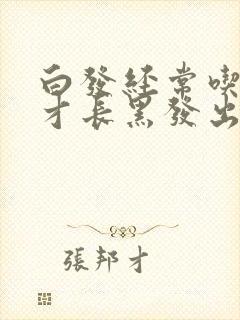 白發經常喫
才長黑發出
張邦才